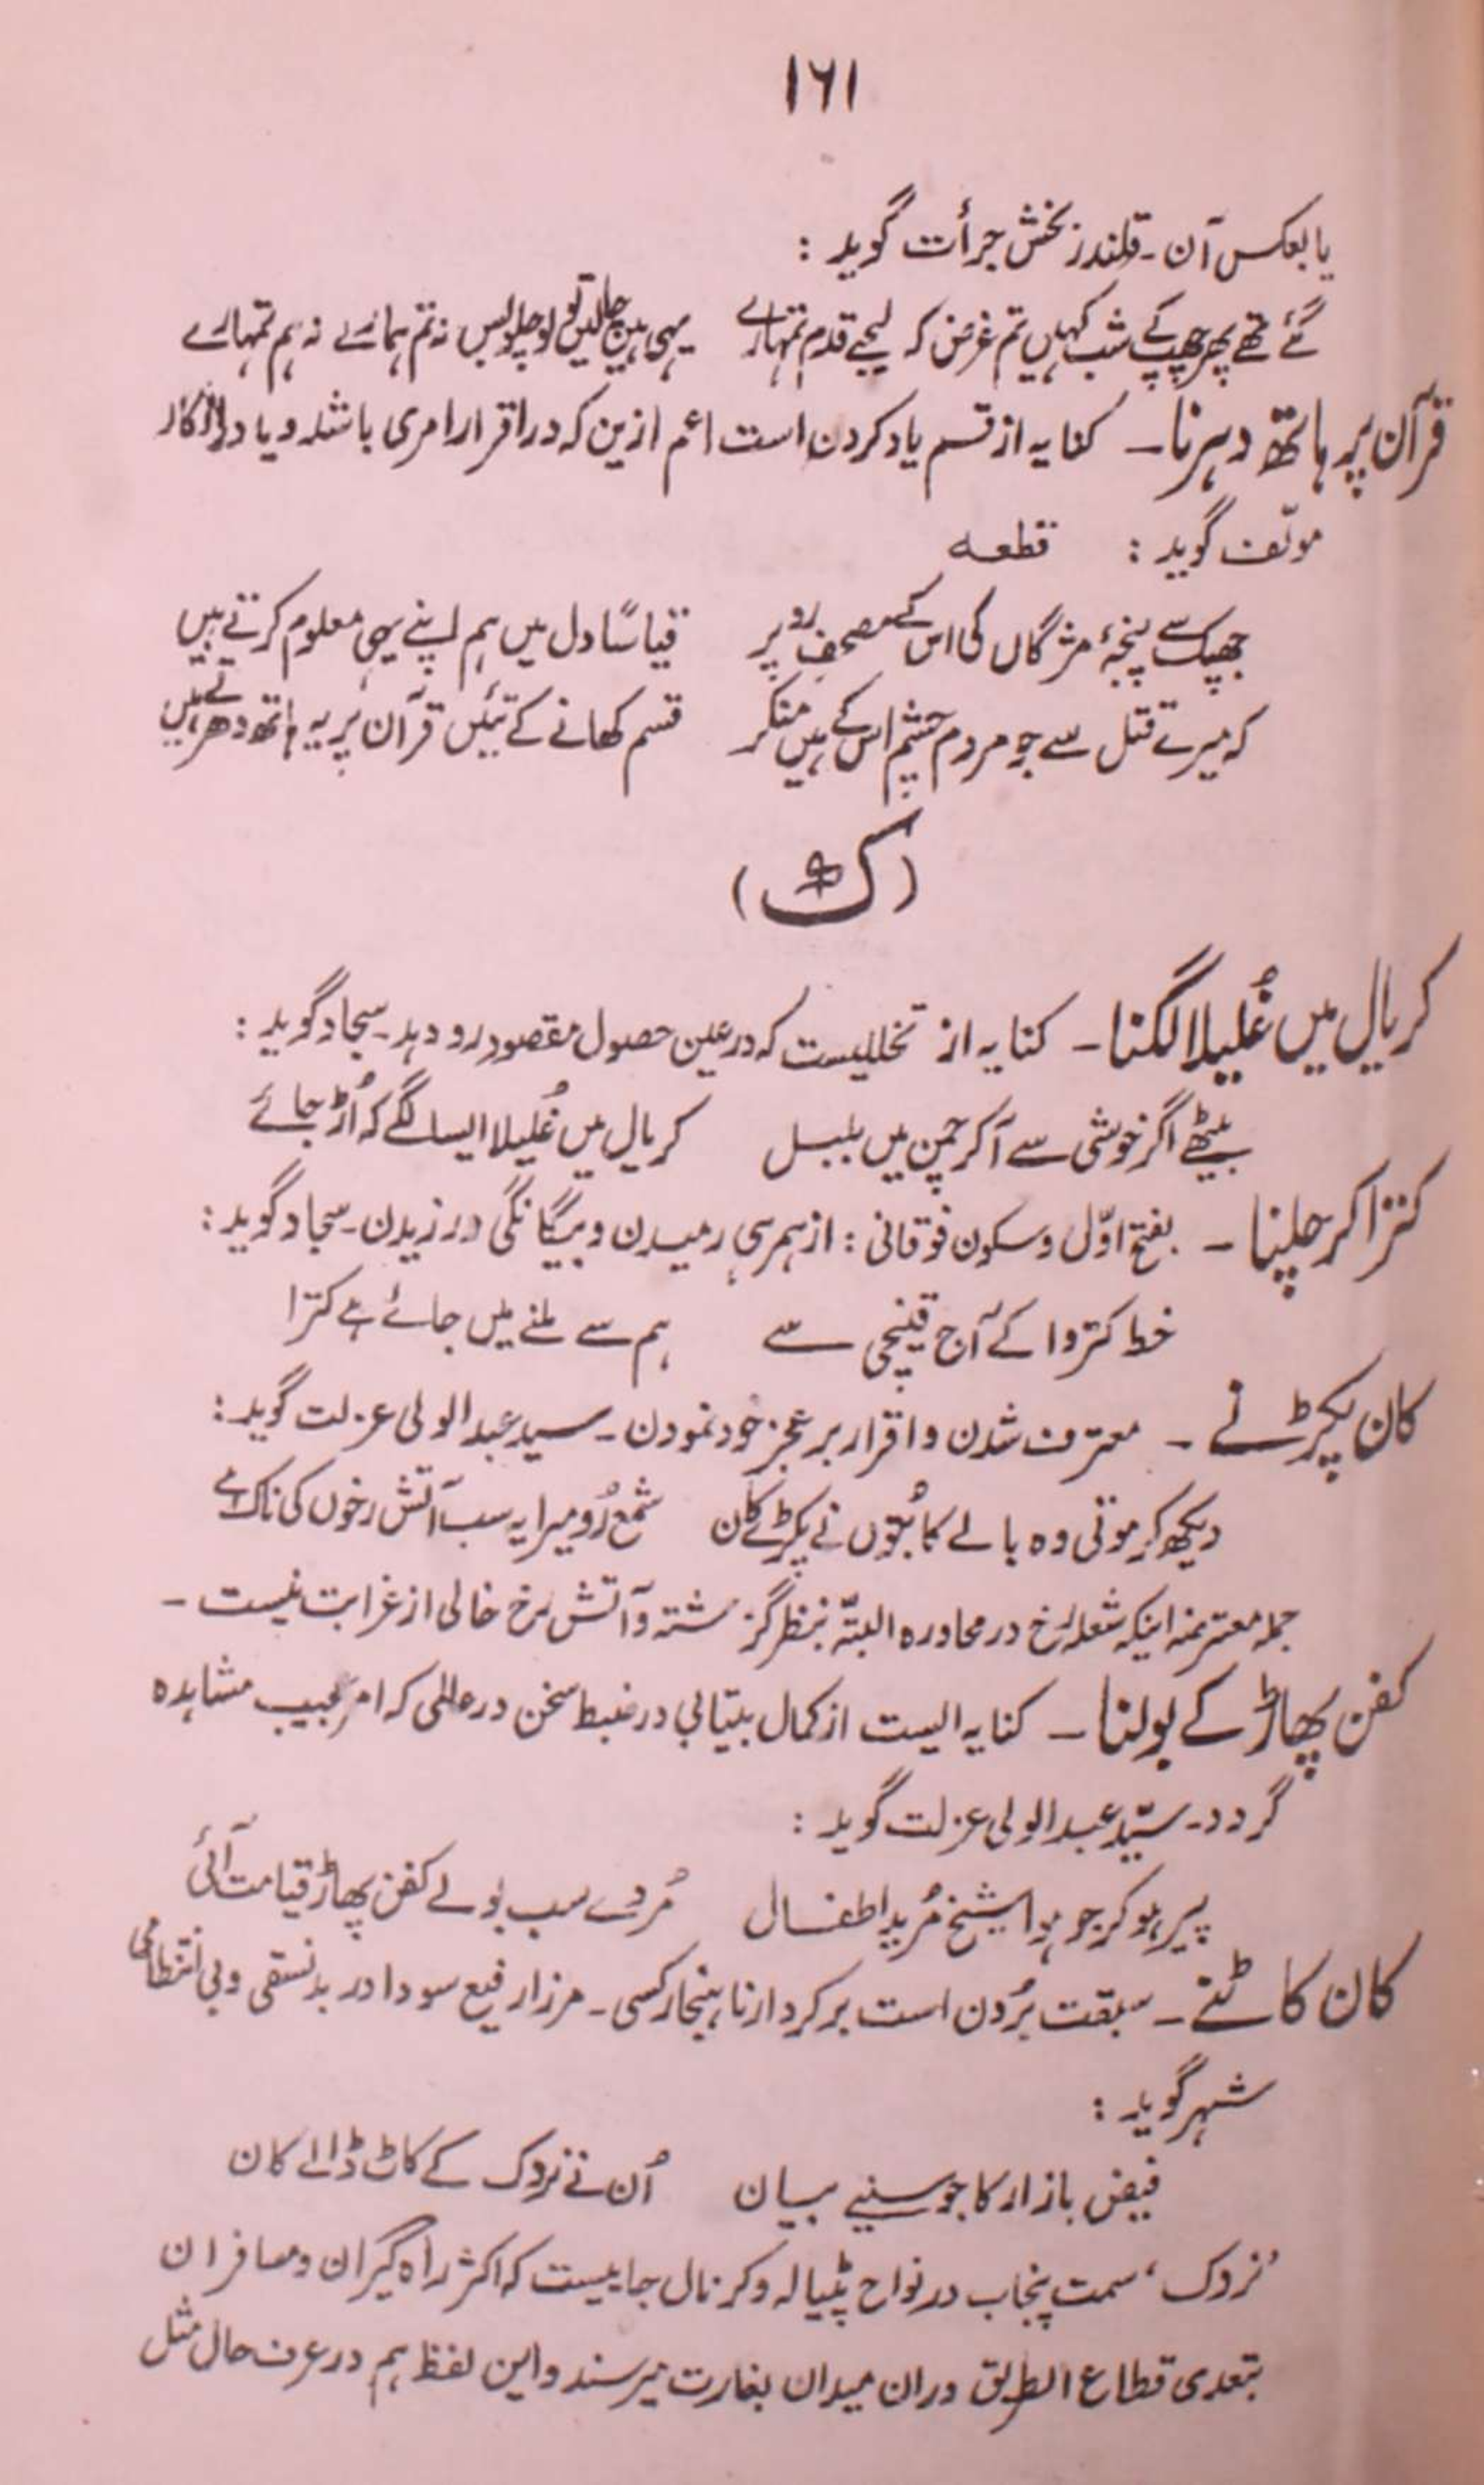 ۱۶۱
یا بعکس آن۔ قلندر بخش جرأت گوید :
گئے تھے پھر چھپ کے شب کہیں تم غرض کہ لیجیے قدم تمہارے یہی ہیں چالیں تو لو چلو بس نہ تم ہمارے نہ ہم تمہارے
قرآن پر ہاتھ دہرنا۔ کنایہ از قسم یاد کردن است اعم ازین کہ در اقرار امری باشد و یا در انکار
مولّف گوید : قطعہ
جھپک سے پنجۂ مژگاں کی اس کے مصحفِ رو پر قیاسًا دل میں ہم اپنے یہی معلوم کرتے ہیں
کہ میرے قتل سے جو مردم چشم اس کے ہیں منکر قسم کھانے کے تئیں قرآن پر یہ ہاتھ دھرتے ہیں
(ک)
کریال میں غُلیلا لگنا۔ کنایہ از تخللیست کہ در عین حصول مقصود رو دہد۔ سجاد گوید :
بیٹھے اگر خوشی سے آکر چمن میں بلبل کریال میں غُلیلا ایسا لگے کہ اُڑ جائے
کترا کر چلنا۔ بفتح اوّل و سکون فوقانی : از ہمرہی رمیدن و بیگانگی ورزیدن۔ سجاد گوید :
خط کتروا کے آج قینچی سے ہم سے ملنے میں جائے ہے کترا
کان پکڑنے۔ معترف شدن و اقرار بر عجز خود نمودن۔ سید عبدالولی عزلت گوید :
دیکھ کر موتی وہ بالے کا بُتوں نے پکڑے کان شمع رُو میرا یہ سب آتش رخوں کی ناک ہے
جملہ معترضہ اینکہ شعلہ رخ در محاورہ البتّہ بنظر گزشتہ و آتش رخ خالی از غرابت نیست۔
کفن پھاڑ کے بولنا۔ کنایہ ایست از کمال بیتابی در ضبط سخن در عالمی کہ امر عجیب مشاہدہ
گردد۔ سیّد عبدالولی عزلت گوید :
پیر ہو کر جو ہوا شیخ مُریدِ اطفال مُردے سب بولے کفن پھاڑ قیامت آئی
کان کاٹنے۔ سبقت بُردن است بر کردار ناہنجار کسی۔ مرزا رفیع سودا در بد نسقی و بی انتظامی
شہر گوید :
فیض بازار کا جو سنیے بیان اُن نے نزدک کے کاٹ ڈالے کان
'نزدک' سمت پنجاب در نواح پٹیالہ و کرنال جاییست کہ اکثر راہ گیران و مسافران
بتعدی قطاع الطریق دران میدان بغارت میرسند و این لفظ ہم در عرف حال مثل